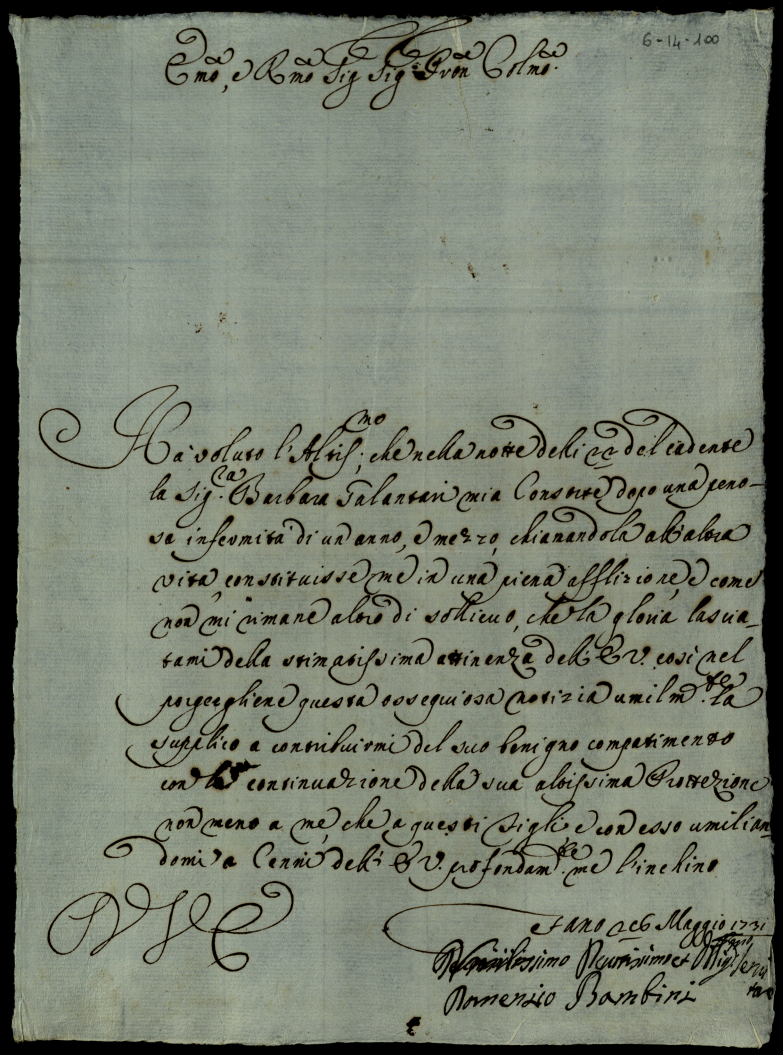 6-14-100
Emo, e Rmo Sig Sig Pron Colmo.
Ha voluto l'Altis.mo, che nella notte delli 22 del cadente
la Sig.ra Barbara Galantari mia Consorte, dopo una peno-
sa infermità di un anno, e mezzo, chiamandola all'altra
vita, constituisse me in una piena afflizione, e come
non mi rimane altro di sollievo, che la gloria lascia-
tami della stimatissima attinenza dell' E V. cosi nel
porgergliene questa ossequiosa notizia umilm.te la
supplico a contribuirmi del suo benigno compatimento
con la continuazione della sua altissima Protezione
non meno a me, che a questi Figli e con esso umilian
domi a Cenni dell' E V. profondam.te me l'inchino
Fano 26 Maggio 1731
Domenico Bambini